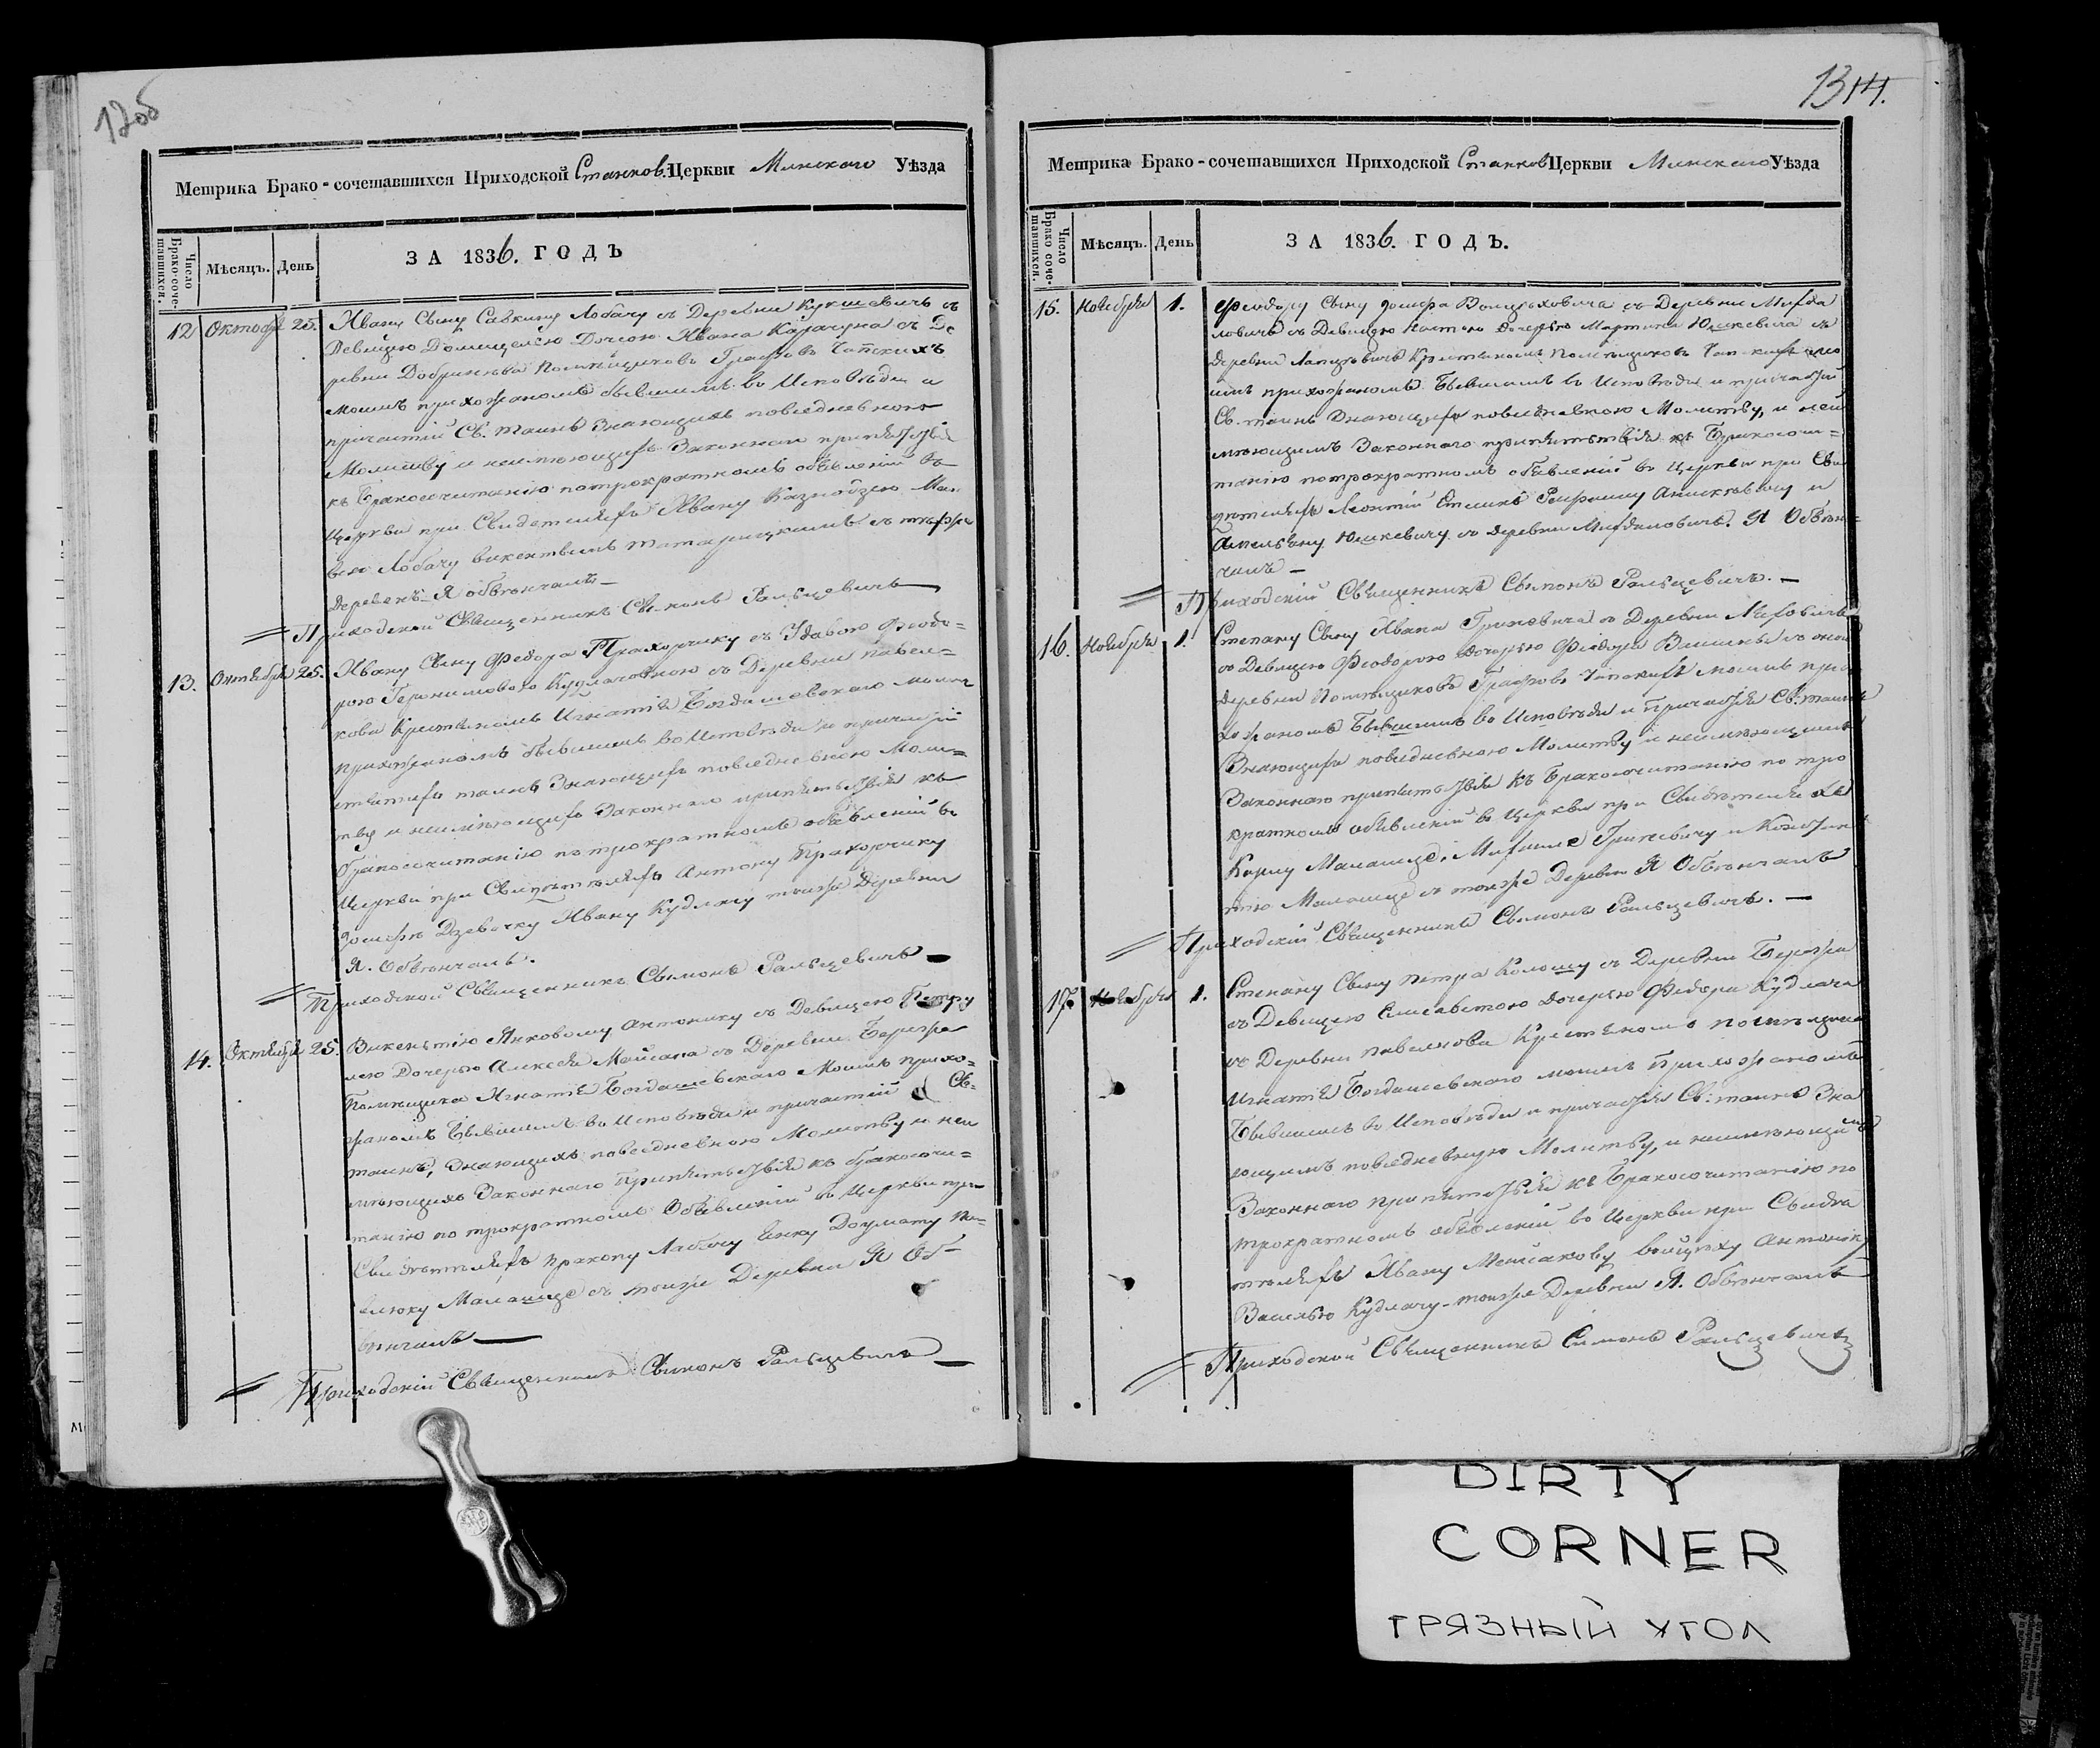 12об
Метрика Брако-сочетавшихся Приходской Станков. Церкви Минского Уѣзда
Число Брако-соче-тавшихся.
Мѣсяцъ.
День
ЗА 1836. ГОДЪ
12 Октобр 25. Ивану Сыну Савкину Лобачу съ Деревни Кукшевичъ съ
Девицею Домицелею Дочерю Ивана Карачуна съ Де
ревни Добринева Помѣщиковъ Графовъ Чапскихъ
моимъ прихожаномъ бывшимъ во Исповѣди и
причастіи Св. таинъ Знающихъ повседневною
Молитву и неимѣющихъ Законнаго припятствія
къ Бракосочитанію потрократномъ обявленій въ
Церкви при Свидетеляхъ Ивану Казнадзею Мат
вею Лобачу викентіемъ татарицкимъ съ тыхже
Деревень Я обвѣнчалъ —
Приходской Священникъ Сымонъ Ральцевичъ
13. Октября 25. Ивану Сыну Федора Прахорчику съ Удавою Феодо=
рою Геронимовою Кудлачовною съ Деревни павел=
кова Крестяномъ Игнатія Богдашевскаго моимъ
прихожаномъ бывшимъ во Исповѣди и причастіи
таинъ Знающихъ повседневною Моли=
тву и неимѣющихъ Законнаго припятствія къ
бракосочитанію потрократномъ обявленій въ
Церкви при Свидѣтеляхъ Антону Прахорчику
Дзевочку Ивану Кудлачу тоиже Деревни
Я. Обвѣнчалъ.
Приходской Священникъ Сымонъ Ральцевичъ —
14. Октября 25. Викентію Янковому Антонику съ Девицею Петру
лею Дочерью Алексея Майсака съ Деревни Бережа
Помѣщика Игнатія Богдашевскаго Моимъ прихо=
жаномъ Бывшимъ во Исповѣди и причастіи Св.
таинъ, Знающихъ повседневною Молитву и неи
мѣющихъ Законнаго Припятствія къ бракосочи=
танію по трократномъ Обявленій въ Церкви при
Свидѣтеляхъ пракопу Лабачу Янку Доумату Па=
влюку Малашце съ тоиже Деревни Я Об=
вѣнчалъ —
Приходскій Священникъ Сымонъ Ральцевичъ —
1314.
Метрика Брако-сочетавшихся Приходской Станков Церкви Минскаго Уѣзда
Число Брако соче-тавшихся.
Мѣсяцъ.
День
ЗА 1836. ГОДЪ.
15. Ноября 1. Феодору Сыну съ Деревни Михда
ловичъ съ Девицею Настою Дочерью Мартина Юшкевича съ
Деревни Крестяномъ Помѣщиковъ Чапскихъ мо
имъ прихожаномъ Бывшимъ во Исповѣди и причастіи
Св. таинъ Знающихъ повседневною Молитву, и неи
мѣющимъ Законнаго припятствія къ Бракосочи=
танію потрократномъ обявленій во Церкви при Сви
дѣтеляхъ Леонтій Юшкевичу съ деревни Михдаловичъ. Я Обвѣн=
чалъ —
Приходскій Священникъ Сымонъ Ральцевичъ. —
16. Ноября 1. Степану Сыну Ивана Гриневича съ Деревни
съ Девицею Феодорою Дочерью Феодора съ оной
деревни Помѣщиковъ Графовъ Чапскихъ моимъ при
хожаномъ Бывшимъ во Исповѣди и Причастія Св. таинъ
Знающихъ повседневною Молитву и неимѣющимъ
Законнаго припятствія къ Бракосочитанію по тро
кратномъ обявленій въ Церкви при Свидѣтеляхъ
Карпу Малашце, Михаиле Гриневичу и
Малашце съ тоиже Деревни Я Обвѣнчалъ
Приходскій Священникъ Сымонъ Ральцевичъ. —
17. Ноября 1. Степану Сыну Петра Колошу съ Деревни Бережа
съ Девицею Елисаветою Дочерью Федора Кудлача
съ Деревни павелкова Крестяномъ помѣщика
Игнатія Богдашевскаго моимъ Прихожаномъ
Бывшимъ во Исповѣди и причастія Св. таинъ Зна
ющимъ повседневную Молитву, и неимѣющимъ
Законнаго припятствія къ Бракосочитанію по
трократномъ обявленій во Церкви при Свидѣ
теляхъ Ивану Майсакову войцеху Антонику
Василью Кудлачу тоиже Деревни Я. Обвѣнчалъ
Приходской Священникъ Симонъ Ральцевичъ
DIRTY
CORNER
ГРЯЗНЫЙ УГОЛ